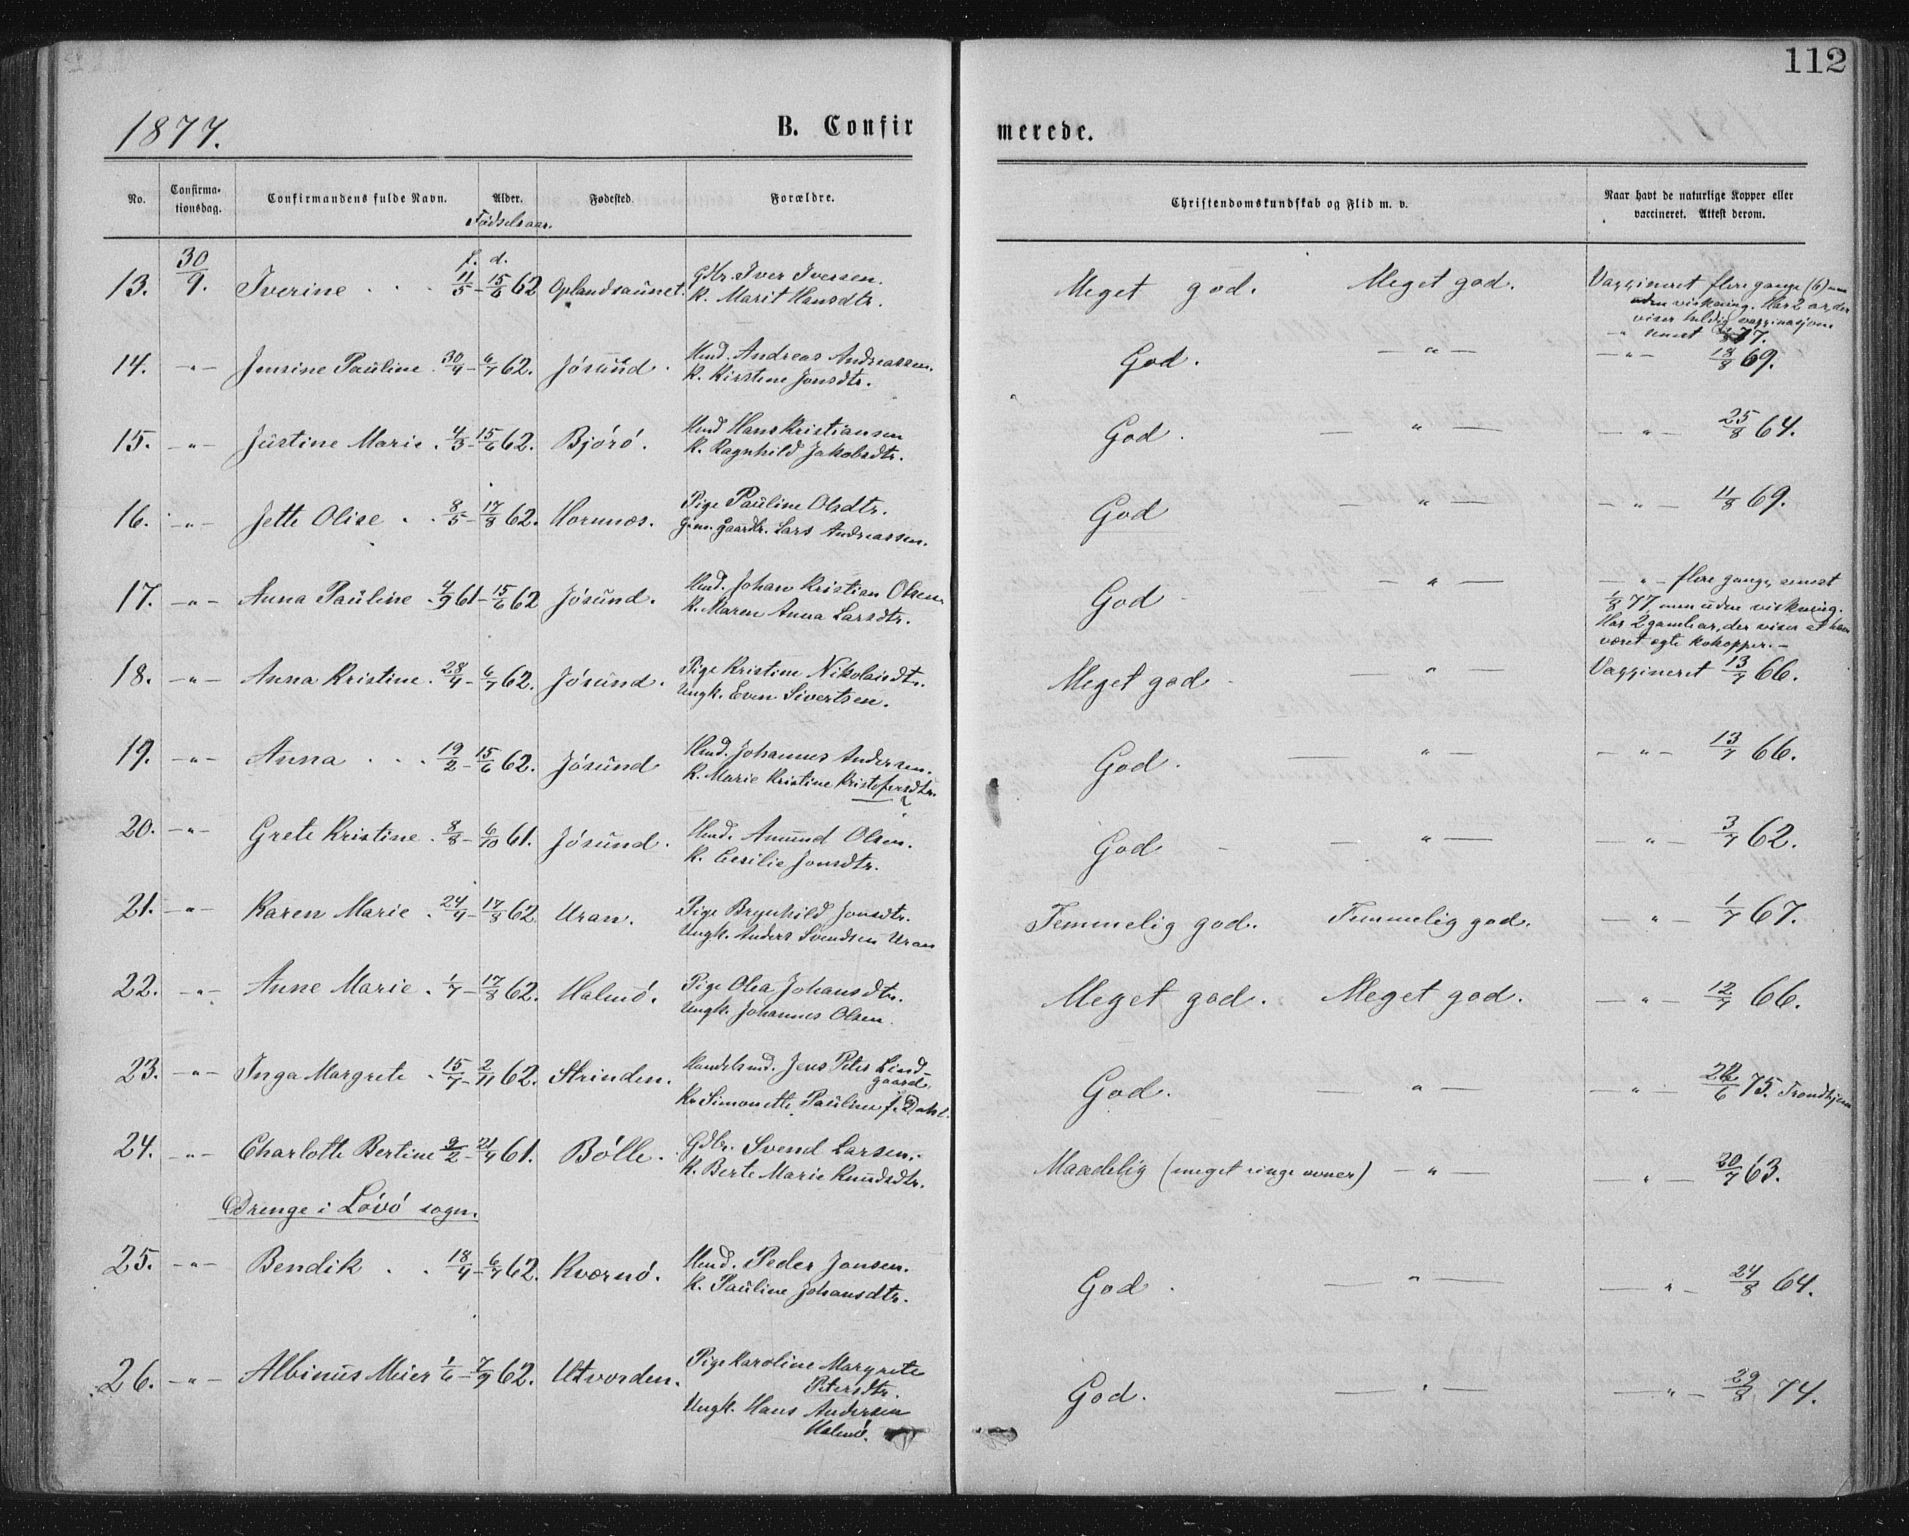 112
1877.
B. Confirmerede.
No. Confirmationsdag. Confirmandens fulde Navn. Alder. Fødested. Forældre. Christendomskundskab og Flid m. v. Naar havt de naturlige Kopper eller vaccineret. Attest derom.
Fødselsaar.
f. d.
13. 30/9. Iverine . . . 11/5 - 15/6 62 Oplandsaunet. Gdbr. Iver Iversen. K. Marit Hansdtr. Meget god. Meget god. Vaxxineret flere gange (6) men uden virkning. Har 2 ar, der viser heldig vaxxinasjon
- " - senest 77.
14. - " - Jensine Pauline. 30/4 - 6/7 62. Jøsund. Hmd. Andreas Andreassen. K. Kirstine Jonsdtr. God. — " — — " — 18/8 69.
15. - " - Justine Marie. 4/3 - 15/6 62. Bjørø. Hmd Hans Kristiansen K. Ragnhild Jakobsdtr. God. — " — — " — 25/8 64.
16. - " - Jette Olise . . 8/5 - 17/8 62. Hornnes. Pige Pauline Olsdtr. Gm. gaardbr. Lars Andreassen. God — " — — " — 11/8 69.
17. - " - Anna Pauline. 4/9 61 - 15/6 62 Jøsund. Hmd. Johan Kristian Olsen. K. Maren Anna Larsdtr. God — " — — " — flere gange, senest 1/8 77, men uden virkning. Har 2 gamle ar, der viser at have været egte kokopper. —
18. - " - Anna Kristine. 28/4 - 6/7 62. Jøsund. Pige Kristine Nikolaisdtr. Ungk. Even Sivertsen. Meget god — " — Vaxxineret 13/7 66.
19. - " - Anna . . . 19/2 - 15/6 62. Jøsund Hmd. Johannes Andersen. K. Marie Kristine Kristofersdtr. God. — " — — " — 13/7 66.
20. - " - Grete Kristine. 8/8 - 6/10 61. Jøsund. Hmd. Amund Olsen. K. Cesilie Jonsdtr. God — " — — " — 3/7 62.
21. - " - Karen Marie. 24/4 - 17/8 62 Uran. Pige Brynhild Jonsdtr. Ungk. Anders Svendsen Uran Temmelig god. Temmelig god. — " — 1/7 67.
22. - " - Anne Marie. 1/7 - 17/8 62. Halmø. Pige Olea Johansdtr. Ungk. Johannes Olsen. Meget god. Meget god. — " — 12/7 66.
23. - " - Inga Margrete. 15/7 - 2/11 62. Strinden. Handelsmd. Jens Peter Lindgaard. K. Simonette Pauline f. Dahl. God. — " — " — 26/6 75. Trondhjem
24. - " - Charlotte Bertine 9/2 - 21/4 61. Bølle. Gdbr. Svend Larsen. K. Berte Marie Knudsdtr. Maadelig (meget ringe evner) — " — — " — 20/7 63.
Drenge i Løvø sogn.
25. - " - Bendik . . 18/4 - 6/7 62. Kvernø. Hmd. Peder Jonsen. K. Pauline Johansdtr. God. — " — — " — 24/8 64.
26. - " - Albinus Meier 1/6 - 7/9 62. Utvorden. Pige Karoline Margrete Petersdtr. Ungk. Hans Andersen Halmø. God. — " — — " — 29/8 74.